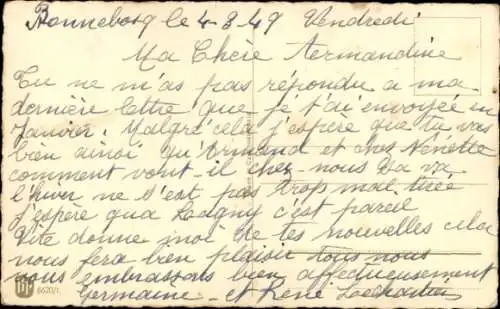 Bonnebosq le 4-3-49 Vendredi
Ma Chère Armandine
Tu ne m'as pas répondu a ma
dernière lettre que je t'ai envoyée en
Janvier. Malgré cela j'espère que tu vas
bien ainsi qu'Armand et chez Nenette
comment vont-il chez-nous sa va
l'hiver ne s'est pas trops mal tirée
j'espère qua Ladgny c'est pareil
Vite donne moi de tes nouvelles cela
nous fera bien plaisir tous nous
vous embrassons bien affectueusement
Germaine et René
6620/1.